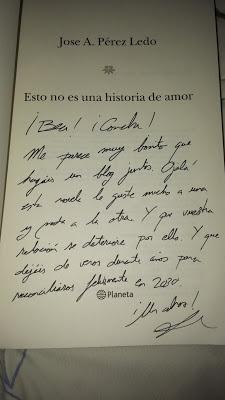 Jose A. Pérez Ledo
Esto no es una historia de amor
¡Bea! ¡Concha!
Me parece muy bonito que
hagáis un blog juntas. Ojalá
esta novela le guste mucho a una
y nada a la otra. Y que vuestra
relación se deteriore por ello. Y que
dejéis de veros durante años para
reconciliaros felizmente en 2030.
Planeta
¡Un abrazo!